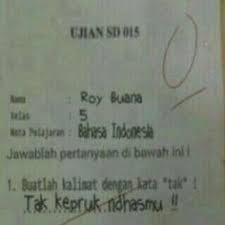 UJIAN SD 015
0
Nama : Roy Buana
Kelas : 5
Mata Pelajaran : Bahasa Indonesia
Jawablah pertanyaan di bawah ini !
1. Buatlah kalimat dengan kata "tak" !
Tak kepruk ndhasmu !!